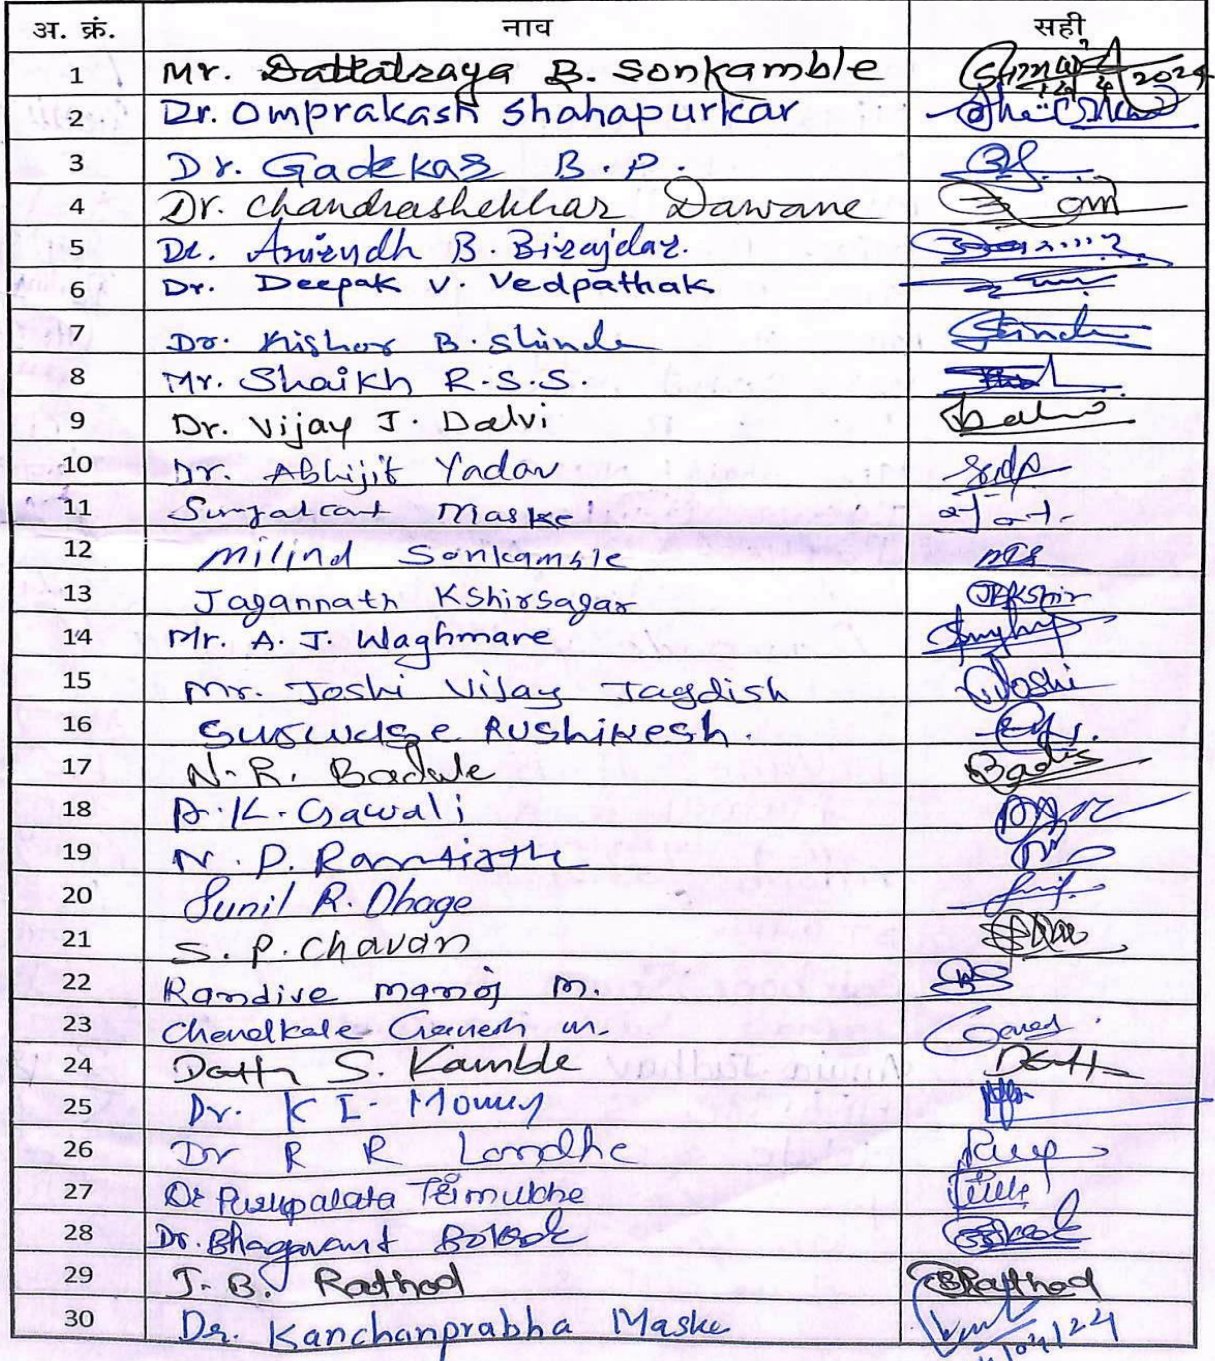 अ. क्रं. नाव सही
1 Mr. Dattatraya B. Sonkamble
2 Dr. Omprakash Shahapurkar
3 Dr. Gadekar B. P.
4 Dr. Chandrashekhar Dawane
5 Dr. Anirudh B. Birajdar.
6 Dr. Deepak V. Vedpathak
7 Dr. Kishor B. Shinde Shinde
8 Mr. Shaikh R.S.S.
9 Dr. Vijay J. Dalvi
10 Dr. Abhijit Yadav
11 Suryakant Maske
12 Milind Sonkamble
13 Jagannath Kshirsagar JBKshir
14 Mr. A. J. Waghmare
15 Mr. Joshi Vijay Jagdish VJoshi
16 Rushikesh.
17 N. R. Badale
18 A. K. Gawali
19 N. P.
20 Sunil R. Dhage
21 S. P. Chavan
22 Randive Manoj M.
23 Ganesh M.
24 Datta S. Kamble Datta
25 Dr. K I
26 Dr R R Londhe
27 Dr
28 Dr. Bhagavant
29 J. B. Rathod JBRathod
30 Dr. Kanchanprabha Maske